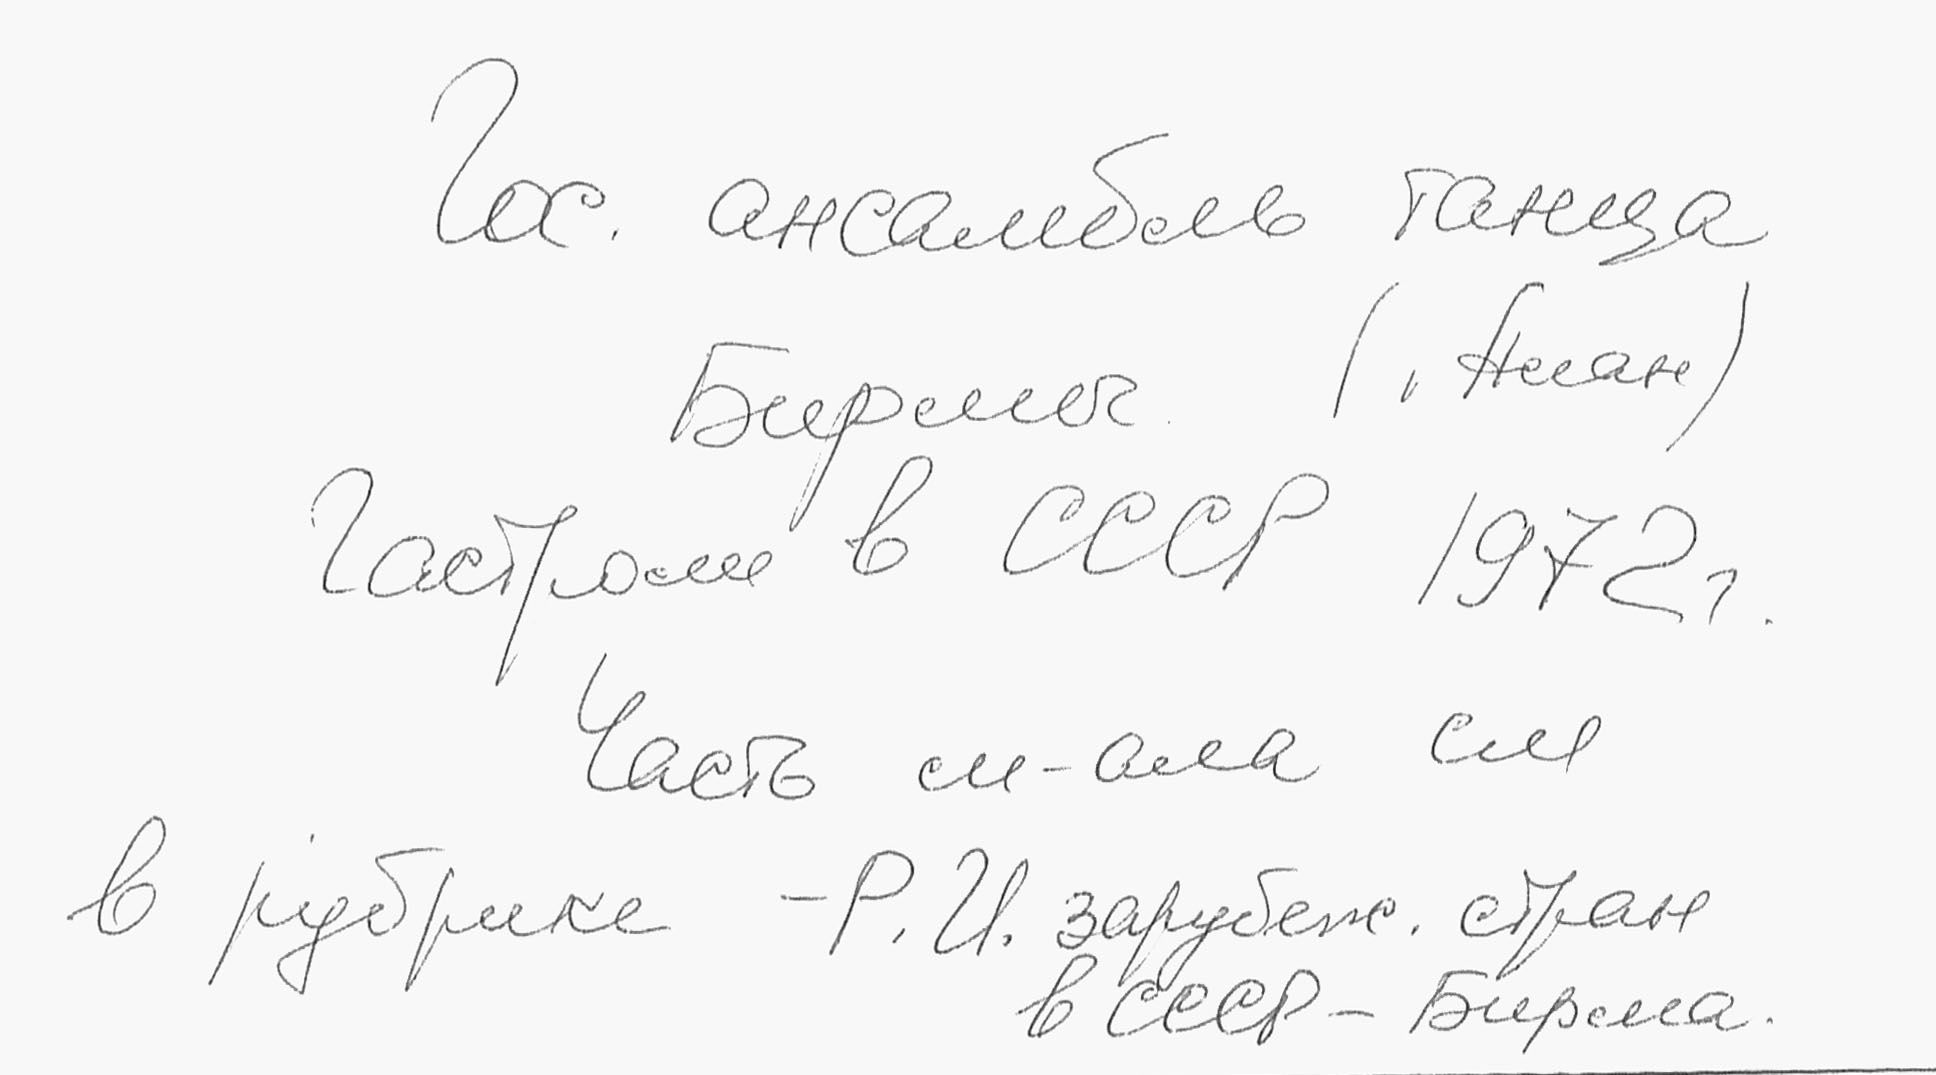 Гос. ансамбль танца
Бирмы.
Гастроли в СССР 1972 г.
Часть м-ала см
в рубрике - Р. И. зарубеж. стран
в СССР - Бирма.